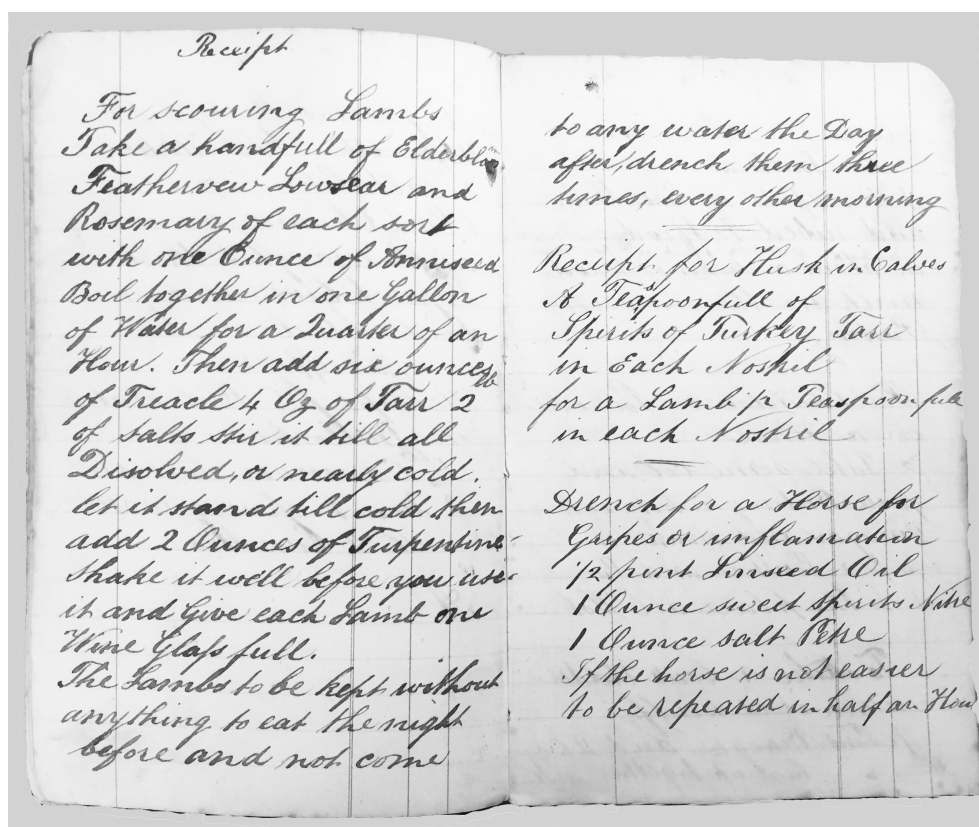 Receipt
For scouring Lambs
Take a handfull of Elderbloom
Feathervew Lowsear and
Rosemary of each sort
with one Ounce of Anniseed
Boil together in one Gallon
of Water for a Quarter of an
Hour. Then add six ounces
of Treacle 4 Oz of Tarr 2 lb
of salts stir it till all
Disolved, or nearly cold.
let it stand till cold then
add 2 Ounces of Turpentine
shake it well before you use
it and Give each Lamb one
Wine Glass full.
The Lambs to be kept without
anything to eat the night
before and not come
to any water the Day
after, drench them three
times, every other morning
Receipt for Husk in Calves
A Teaspoonfull of
Spirits of Turkey Tarr
in Each Nostril
for a Lamb Teaspoonfull
in each Nostril
Drench for a Horse for
Gripes or inflamation
1/2 pint Linseed Oil
1 Ounce sweet spirits Nitre
1 Ounce salt Petre
If the horse is not easier
to be repeated in half an Hour